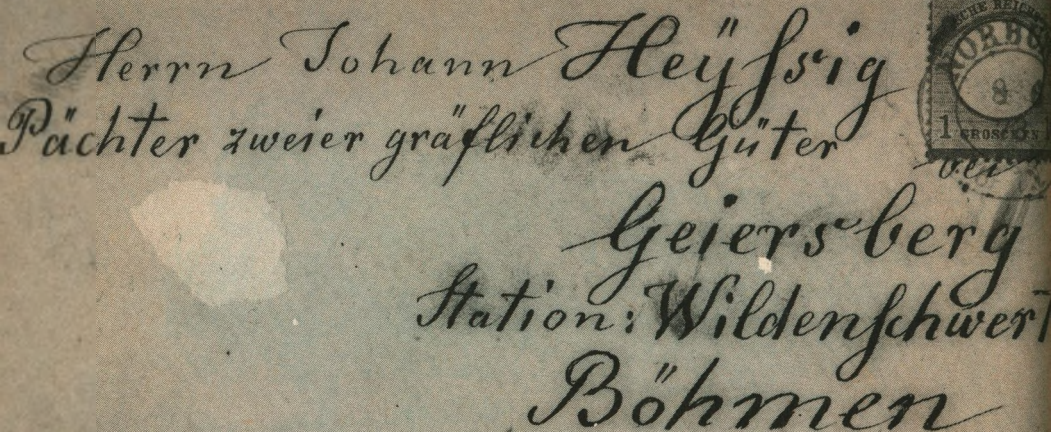 Herrn Johann Heÿſsig
Pächter zweier gräflichen Güter
bei
Geiersberg
Station: Wildenſchwert
Böhmen
1 GROSCHEN